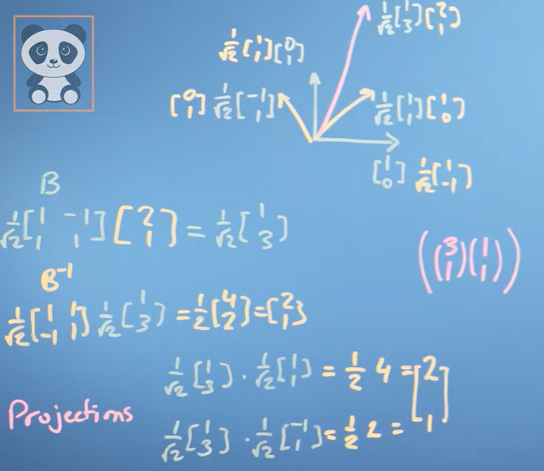 1/√2 [1 3] [2 1]
1/√2 [1 1] [0 1]
[0 1] 1/√2 [-1 1]
1/√2 [1 1] [1 0]
[1 0] 1/√2 [1 -1]
B
1/√2 [1 -1 1 1] [2 1] = 1/√2 [1 3]
((3 1) (1 1))
B⁻¹
1/√2 [1 1 -1 1] 1/√2 [1 3] = 1/2 [4 2] = [2 1]
1/√2 [1 3] · 1/√2 [1 1] = 1/2 4 = [2
Projections
1/√2 [1 3] · 1/√2 [-1 1] = 1/2 2 = 1]